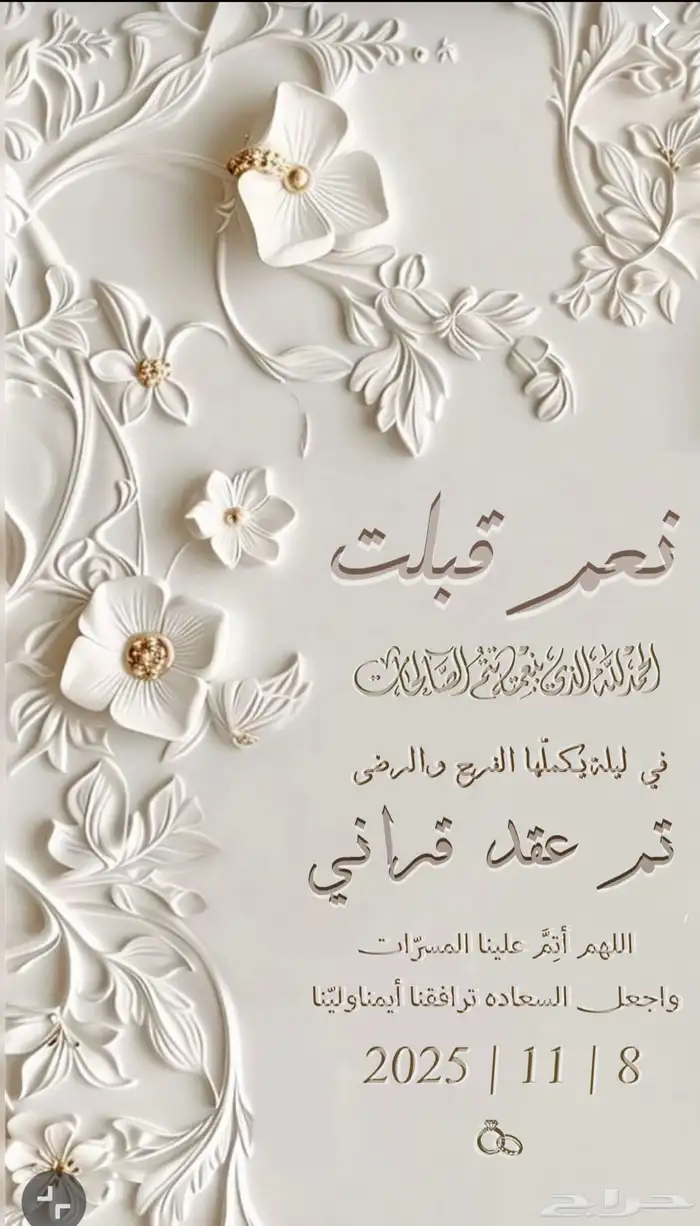 نعم قبلت
الحمد لله الذي بنعمته تتم الصالحات
في ليلة يُكملّها الفرح والرضى
تم عقد قراني
اللهم أتِمَّ علينا المسرّات
واجعل السعاده ترافقنا أيمناوليّنا
2025 | 11 | 8
حراج